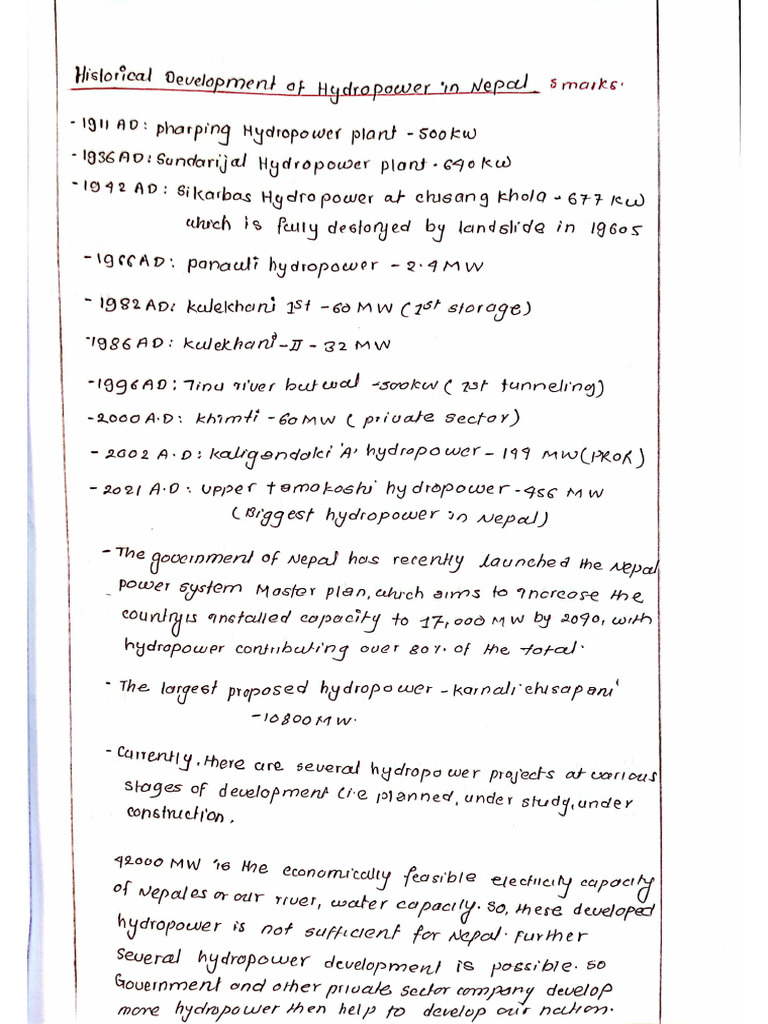 Historical Development of Hydropower in Nepal 5 marks.
- 1911 AD: pharping Hydropower plant - 500kw
- 1936 AD: Sundarijal Hydropower plant - 640 kw
- 1942 AD: Sikarbas Hydropower at chisang khola - 677 kw
which is fully destoryed by landslide in 1960s
- 1966AD: panauti hydropower - 2.4 MW
- 1982 AD: kulekhani 1st - 60 MW (1st storage)
- 1986 AD: kulekhani - II - 32 MW
- 1996AD: Tinu river butwal - 500kw ( 1st tunneling)
- 2000 A.D: khimti - 60 MW ( private sector)
- 2002 A.D: kaligandaki 'A' hydropower - 144 MW(PROR)
- 2021 A.D: upper tamokoshi hydropower - 456 MW
(Biggest hydropower in Nepal)
- The government of Nepal has recently launched the Nepal
power system Master plan, which aims to increase the
country's installed capacity to 17,000 MW by 2040, with
hydropower contributing over 80% of the total.
- The largest proposed hydropower - karnali chisapani
- 10800 MW.
- Currently, there are several hydropower projects at various
stages of development (i.e planned, under study, under
construction.
42000 MW is the economically feasible electricity capacity
of Nepales or our river, water capacity. So, these developed
hydropower is not sufficient for Nepal. Further
several hydropower development is possible. so
Government and other private sector company develop
more hydropower then help to develop our nation.